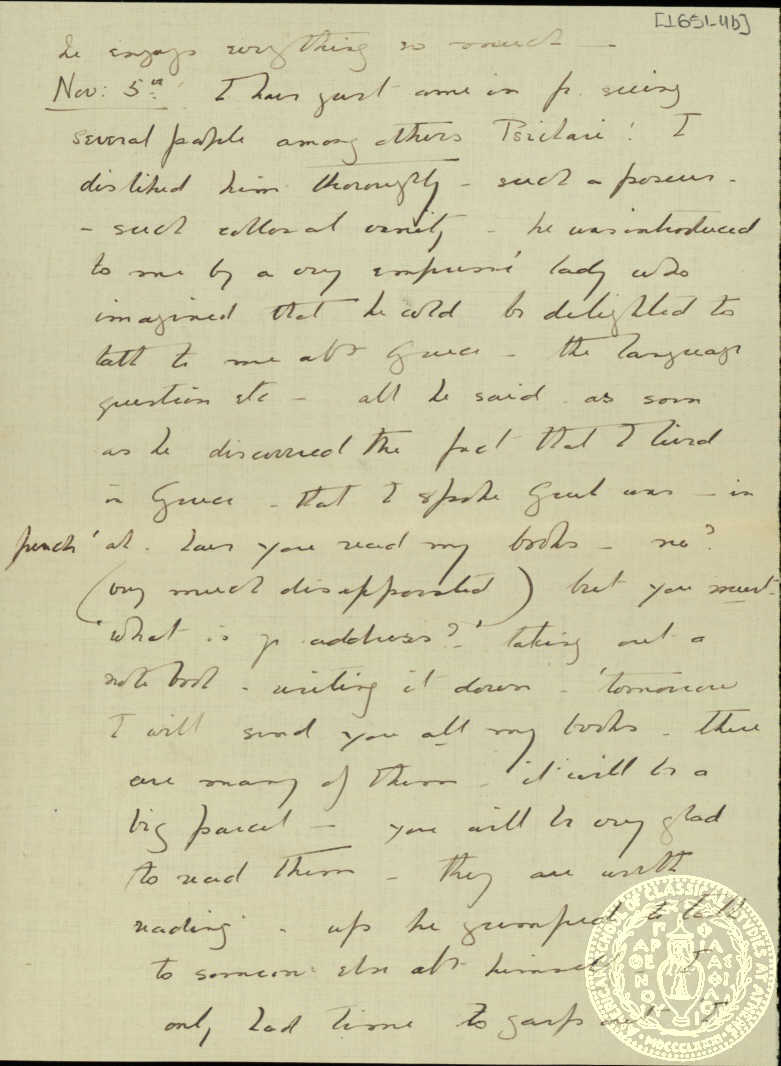 [1651-4b]
he enjoys everything so much —
Nov: 5th: I have just come in fr. seeing
several people among others Psichari! I
disliked him thoroughly – such a poseur –
– such collosal vanity – he was introduced
to me by a very empressé lady who
imagined that he wld be delighted to
talk to me abt Greece – the language
question etc – all he said as soon
as he discovered the fact that I lived
in Greece – that I spoke Greek was – in
french 'ah. have you read my books – no?
(very much disappointed) but you must –
'what is yr address?' taking out a
note book – writing it down – 'tomorrow
I will send you all my books – there
are many of them – it will be a
big parcel – you will be very glad
to read them – they are worth
reading' – up he jumped to talk
to someone else abt himself – I
only had time to gasp out I
AMERICAN SCHOOL OF CLASSICAL STUDIES AT ATHENS
ΠΑΡΘΕΝΟΥ ΦΙΛΑΣ ΦΙΛΟΙ
MDCCCLXXXI